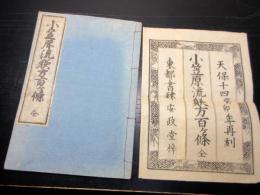 小笠原流躾方百ヶ條 全
天保十四癸卯年再刻
小笠原流躾方百ヶ條 全
東都書肆 安政堂梓